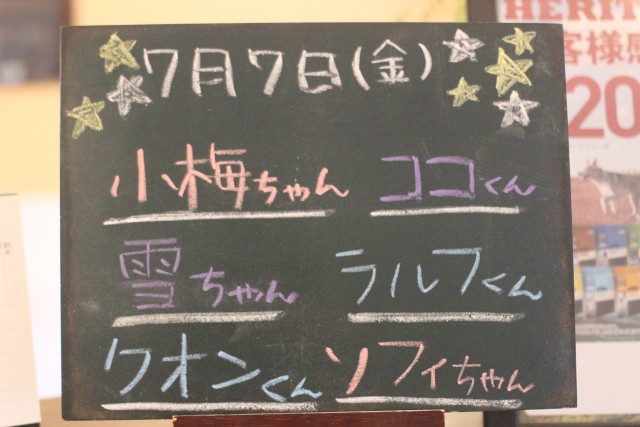 7月7日(金)
小梅ちゃん ココくん
雪ちゃん ラルフくん
クオンくん ソフィちゃん
HERIT
客様感
20